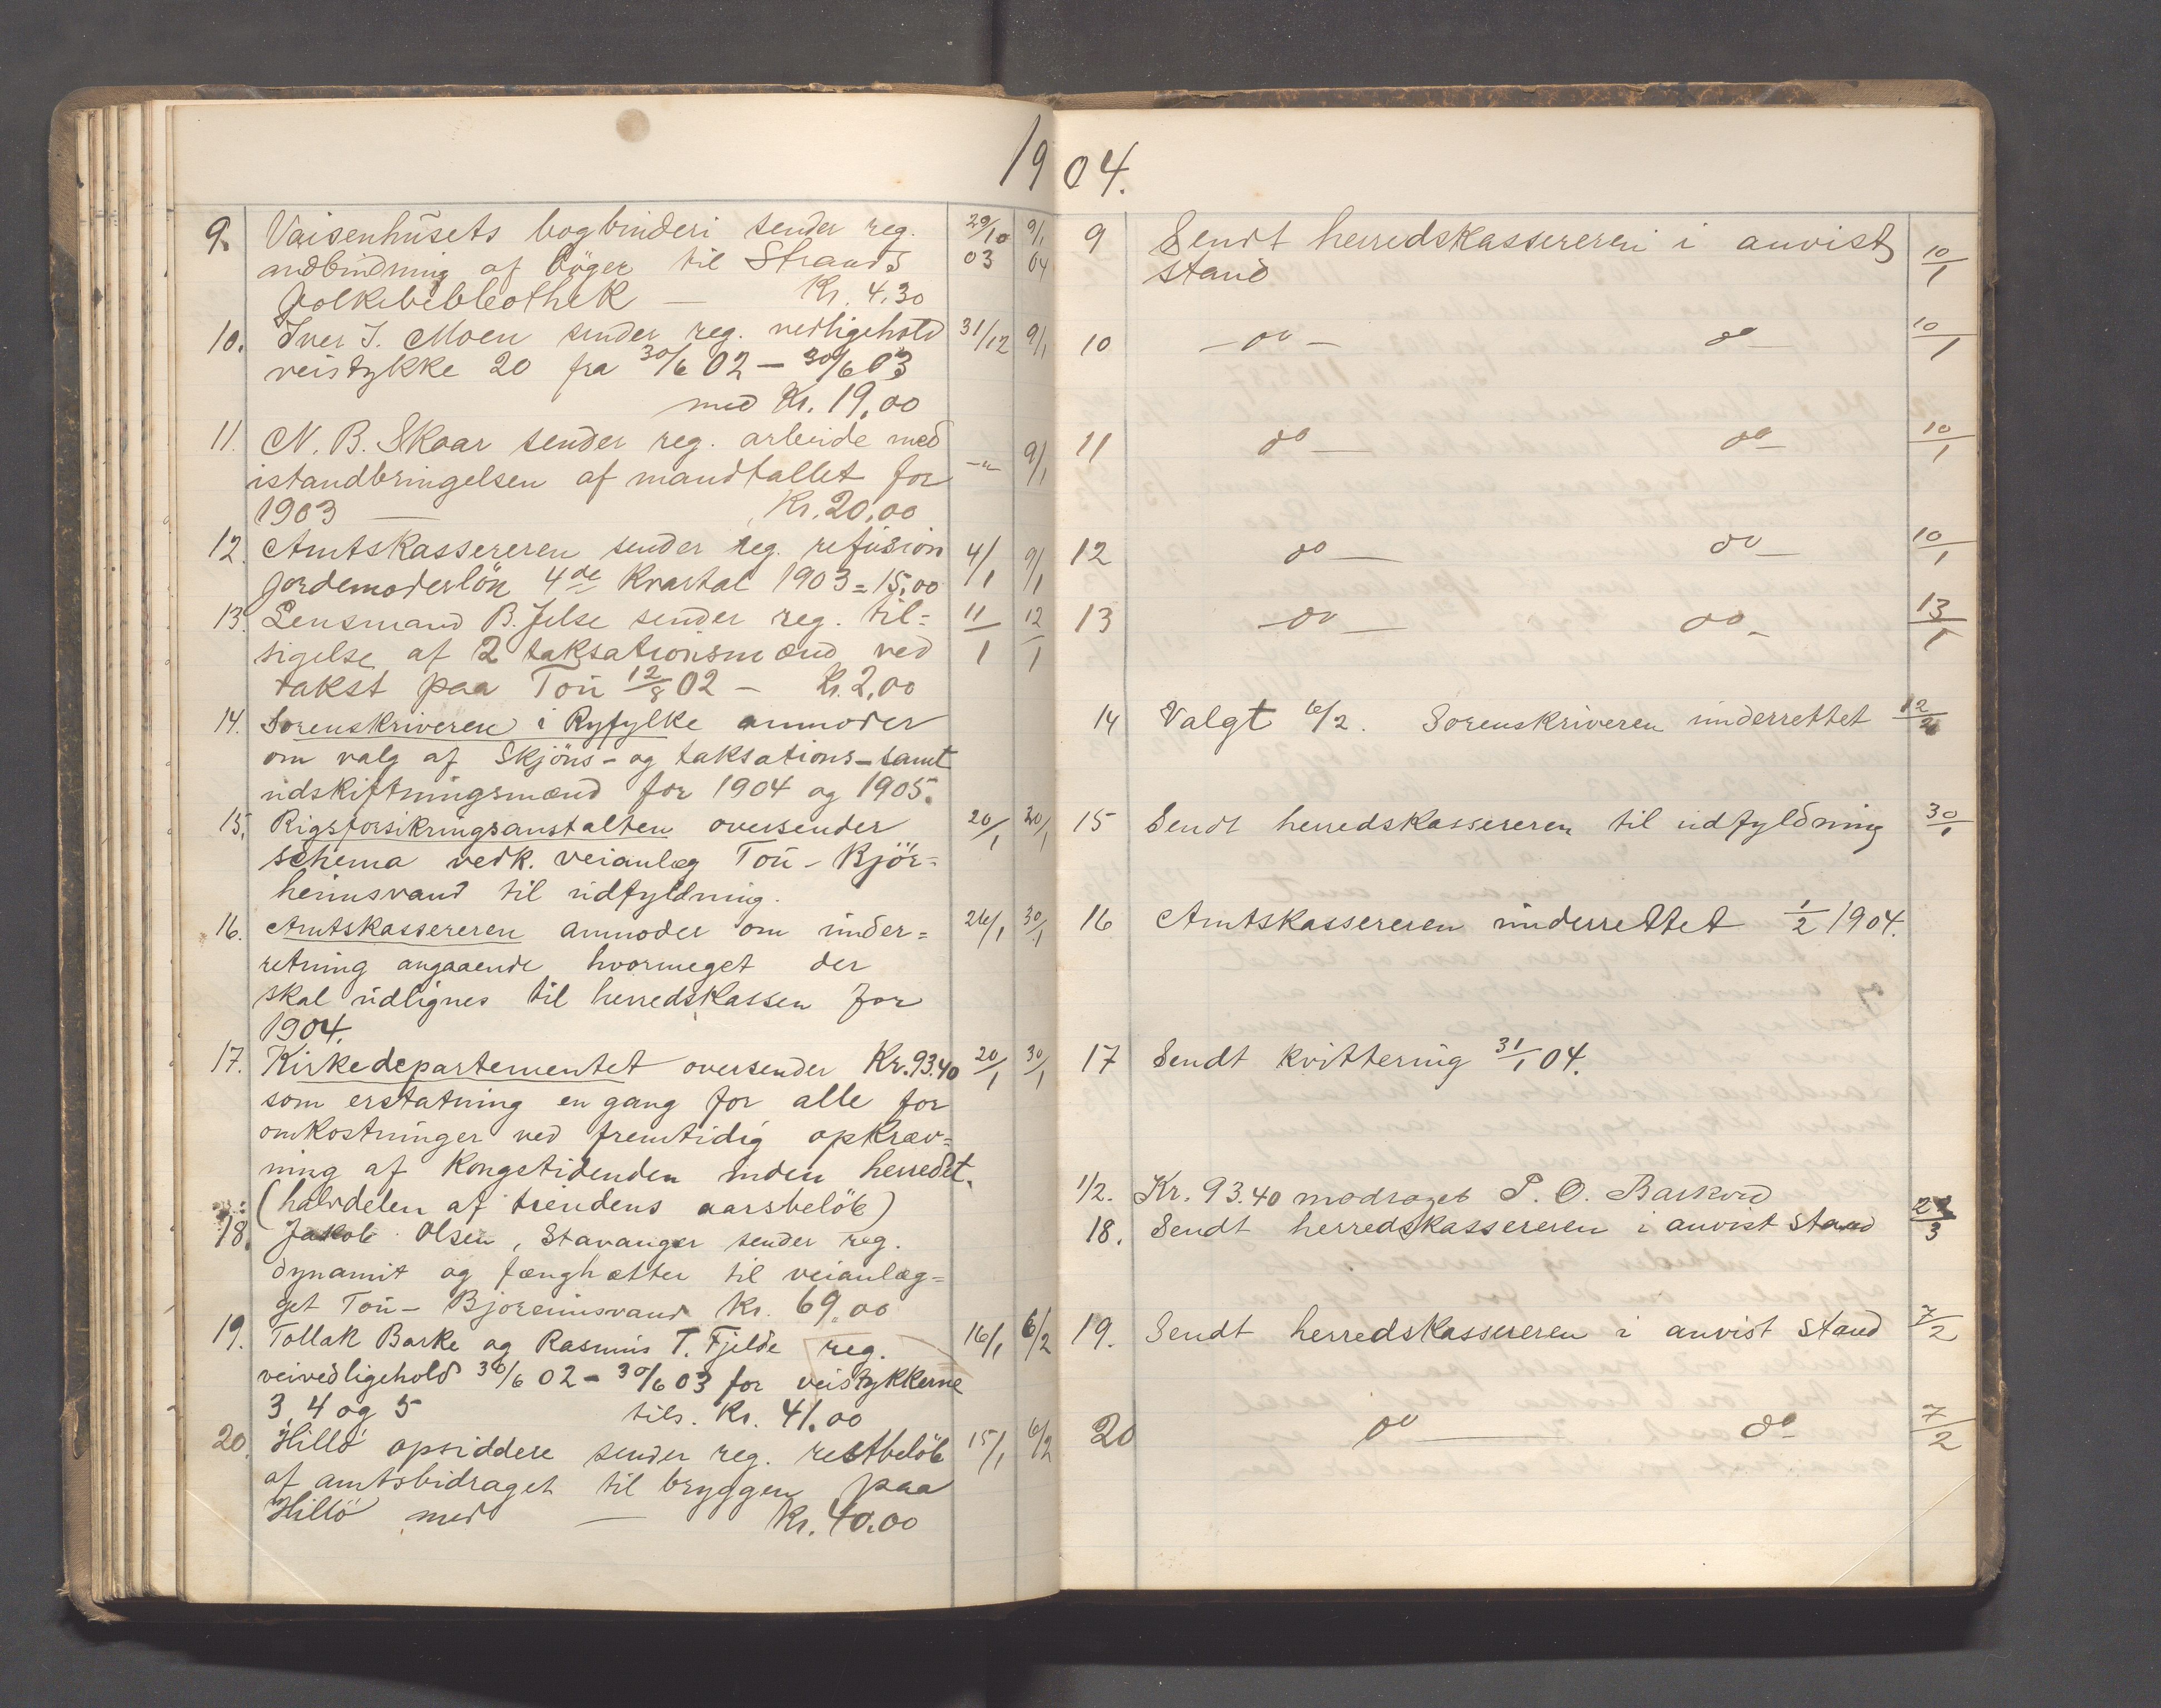 1904.
9. Vaisenhusets bogbinderi sender reg. 29/10 9/1
indbinding af böger til Strands 03 04
folkebibliothek — Kr. 4.30
10. Iver I. Moen sender reg. vedligehold 31/12 9/1
veistykke 20 fra 30/6 02 – 30/6 03
med Kr. 19,00
11. N. B. Skaar sender reg. arbeide med
istandbringelsen af mandtallet for -"- 9/1
1903 — Kr. 20,00
12. Amtskassereren sender reg. refusion 4/1 9/1
jordemoderlön 4de Kvartal 1903 = 15,00
13. Lensmand B. Jelse sender reg. til= 11/1 12/1
sigelse af 2 taksationsmænd ved
takst paa Tou 12/8 02 – Kr. 2,00
14. Sorenskriveren i Ryfylke anmoder
om valg af Skjöns- og taksations- samt
udskiftningsmænd for 1904 og 1905.
15. Rigsforsikringsanstalten oversender 20/1 30/1
schema vedk. veianlæg Tou – Björ=
heimsvand til udfyldning.
16. Amtskassereren anmoder om under= 26/1 30/1
retning angaaende hvormeget der
skal udlignes til herredskassen for
1904.
17. Kirkedepartementet oversender Kr. 93.40 20/1 30/1
som erstatning en gang for alle for
omkostninger ved fremtidig opkræv=
ning af Kongetidenden inden herredet.
(halvdelen af tiendens aarsbelöb)
18. Jakob Olsen, Stavanger sender reg.
dynamit og fænghætter til veianlæg=
get Tou – Bjoreimsvand Kr. 69,00
19. Tollak Barke og Rasmus T. Fjelde reg. 16/1 6/2
veivedligehold 30/6 02 – 30/6 03 for veistykkerne
3, 4 og 5 tils. Kr. 41.00
20. Hillö opsiddere sender reg. restbelöb 15/1 6/2
af amtsbidraget til bryggen paa
Hillö med — Kr. 40.00
9 Sendt herredskassereren i anvist
stand 10/1
10 – do – do – 10/1
11 do – do – 10/1
12 do – do – 10/1
13 – do – do – 13/1
14 Valgt 6/2. Sorenskriveren underrettet 12/2
15 Sendt herredskassereren til udfyldning 30/1
16 Amtskassereren underrettet 1/2 1904.
17 Sendt kvittering 31/1 04.
1/2. Kr. 93.40 modtaget P. O.
18. Sendt herredskassereren i anvist stand
19. Sendt herredskassereren i anvist stand 7/2
20 do — do – 7/2